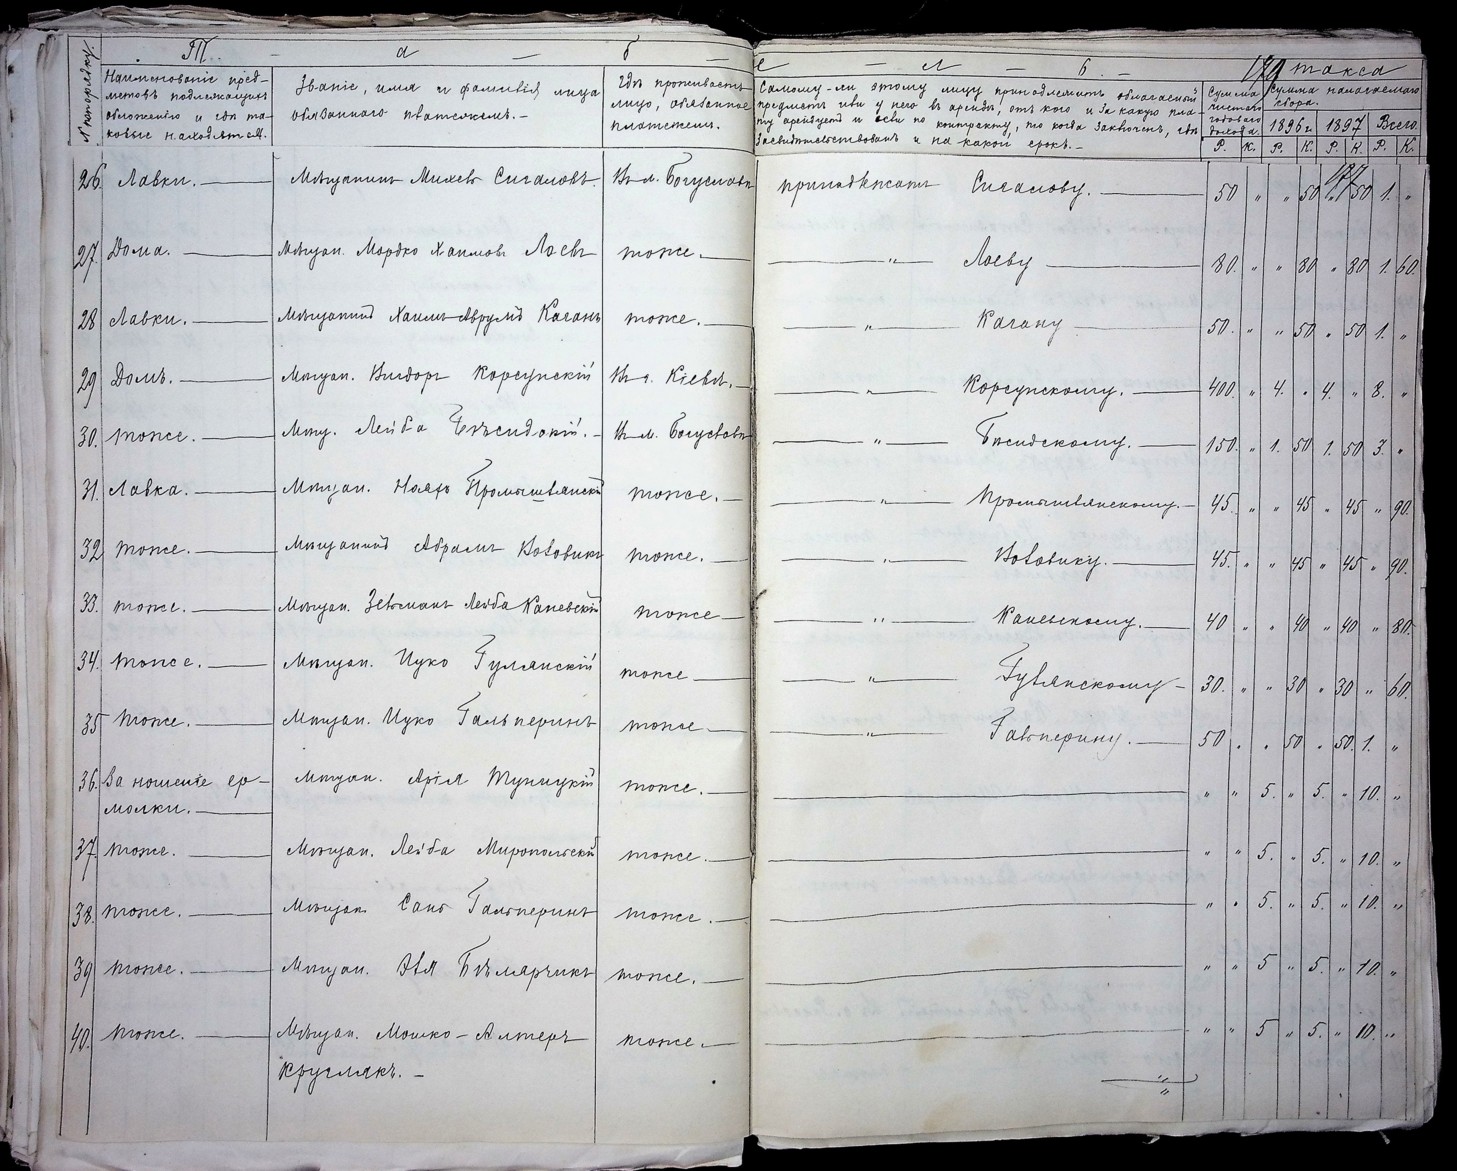 Т - а - б - е - л - ь -
такса
№ по порядку.
Наименованіе пред-
метовъ подлежащихъ
обложенію и гдѣ та-
ковые находятся.
Званіе, имя и фамилія лица
обязаннаго платежомъ. -
Гдѣ проживаетъ
лицо, обязанное
платежемъ.
Самому-ли этому лицу принадлежитъ облагаемый
предметъ или у него въ арендѣ, отъ кого и за какую пла-
ту арендуетъ и если по контракту, то когда заключенъ, гдѣ
засвидѣтельствованъ и на какой срокъ. -
Сумма
чистаго
годового
дохода.
Сумма налагаемаго
сбора.
1896 г. 1897 Всего.
Р. К. Р. К. Р. К. Р. К.
26. Лавки. Мѣщанинъ Михель Сигаловъ. Въ м. Богуславѣ принадлежатъ Сигалову. 50 " " 50 " 50 1. "
27. Дома. Мѣщан. Мордко Хаимовъ Лоевъ тоже. " Лоеву 80. " " 80 " 80 1. 60.
28 Лавки. Мѣщанинъ Хаимъ-Аврумъ Каганъ тоже. " Кагану 50. " " 50 " 50 1. "
29 Домъ. Мѣщан. Вигдоръ Корсунскій Въ г. Кіевѣ. " Корсунскому. 400. " 4. " 4. " 8. "
30. тоже. Мѣщ. Лейба Бѣлсидскій. - Въ м. Богуславѣ " 150. " 1. 50 1. 50 3. "
31. Лавка. Мѣщан. Промышлянскій тоже. " Промышлянскому. 45. " " 45 " 45 " 90.
32 тоже. Мѣщанинъ Абрамъ Воловикъ тоже. " Воловику. 45. " " 45 " 45 " 90.
33. тоже. Мѣщан. Зельманъ Лейба Каневскій тоже " Каневскому. 40 " " 40 " 40 " 80.
34. тоже. Мѣщан. Ицко Гулянскій тоже " Гулянскому 30. " " 30 " 30 " 60.
35 тоже. Мѣщан. Ицко Гальперинъ тоже " Гальперину. 50 " " 50 " 50. 1. "
36. За ношеніе ер-
молки. Мѣщан. Арія Туницкій тоже. " " 5. " 5. " 10. "
37. тоже. Мѣщан. Лейба Миропольскій тоже. " " 5. " 5. " 10. "
38. тоже. Мѣщан. Гальперинъ тоже. " " 5. " 5. " 10. "
39 тоже. Мѣщан. Эля тоже. " " 5 " 5. " 10. "
40. тоже. Мѣщан. Мошко-Алтеръ тоже. " " 5 " 5. " 10. "
Круглякъ. -